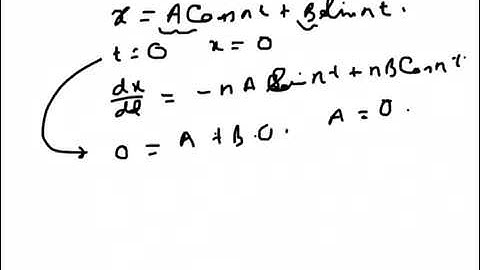 x = A Cos nt + B Sin nt.
t = 0 x = 0
dx/dt = - n A Sin nt + n B Cos nt.
0 = A + B.0. A = 0.